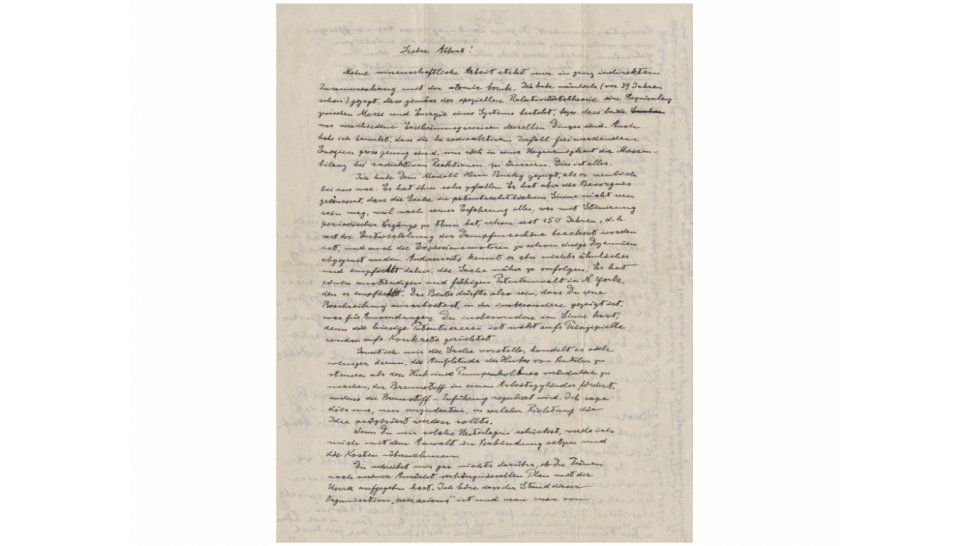 Lieber Albert!
Meine wissenschaftliche Arbeit steht nur in ganz indirektem
Zusammenhang mit der atomic bombe. Ich habe nämlich (vor 39 Jahren
schon) gezeigt, dass gemäss der speziellen Relativitätstheorie eine Aequivalenz
zwischen Masse und Energie eines Systems besteht, bezw. dass beide
nur verschiedene Erscheinungsweisen desselben Dinges sind. Auch
habe ich bemerkt, dass die bei radioaktivem Zerfall frei werdenden
Energien gross genug sind, um sich in einer Ungenauigkeit der Massen-
bilanz bei radioaktiven Reaktionen zu äussern. Dies ist alles.
Ich habe Dein Modell Herrn Bucky gezeigt, als er neulich
bei uns war. Es hat ihm sehr gefallen. Er hat aber das Bedenken
geäussert, dass die Sache im patentrechtlichen Sinne nicht neu
sein mag, weil nach seiner Erfahrung alles, was mit Steuerung
periodischer Vorgänge zu thun hat, schon seit 150 Jahren, d. h.
seit der Entwicklung der Dampfmaschine beackert worden
ist, und auch die Explosionsmotoren ja schon einige Dezennien
abgegrast wurden. Andrerseits kennt er eben nichts ähnliches
und empfiehlt daher, die Sache näher zu verfolgen. Er hat
einen anständigen und fähigen Patentanwalt in N. York,
den er empfiehlt. Das Beste dürfte also sein, dass Du eine
Beschreibung ausarbeitest, in der insbesondere gezeigt ist,
was für Anwendungen Du insbesondere im Sinne hast,
denn die hiesige Patentiererei ist nicht aufs Prinzipielle
sondern aufs Konkrete gerichtet.
Soweit ich mir die Sache vorstelle, handelt es sich
weniger darum, die Amplitude des Hubes von Ventilen zu
steuern als den Hub eines Pumpenkolbens veränderlich zu
machen, der Brennstoff in einen Arbeitszylinder fördert,
sodass die Brennstoff-Zuführung reguliert wird. Ich sage
dies nur, um anzudeuten, in welcher Richtung die
Idee präzisiert werden sollte.
Wenn Du mir solche Unterlagen schickst, werde ich
mich mit dem Anwalt in Verbindung setzen und
die Kosten übernehmen.
Du schreibst mir gar nichts darüber, ob Du Deinen
nach meiner Ansicht verhängnisvollen Plan mit der
aufgegeben hast. Ich höre dass der Stand dieser
Organisation „precarious“ ist und man von